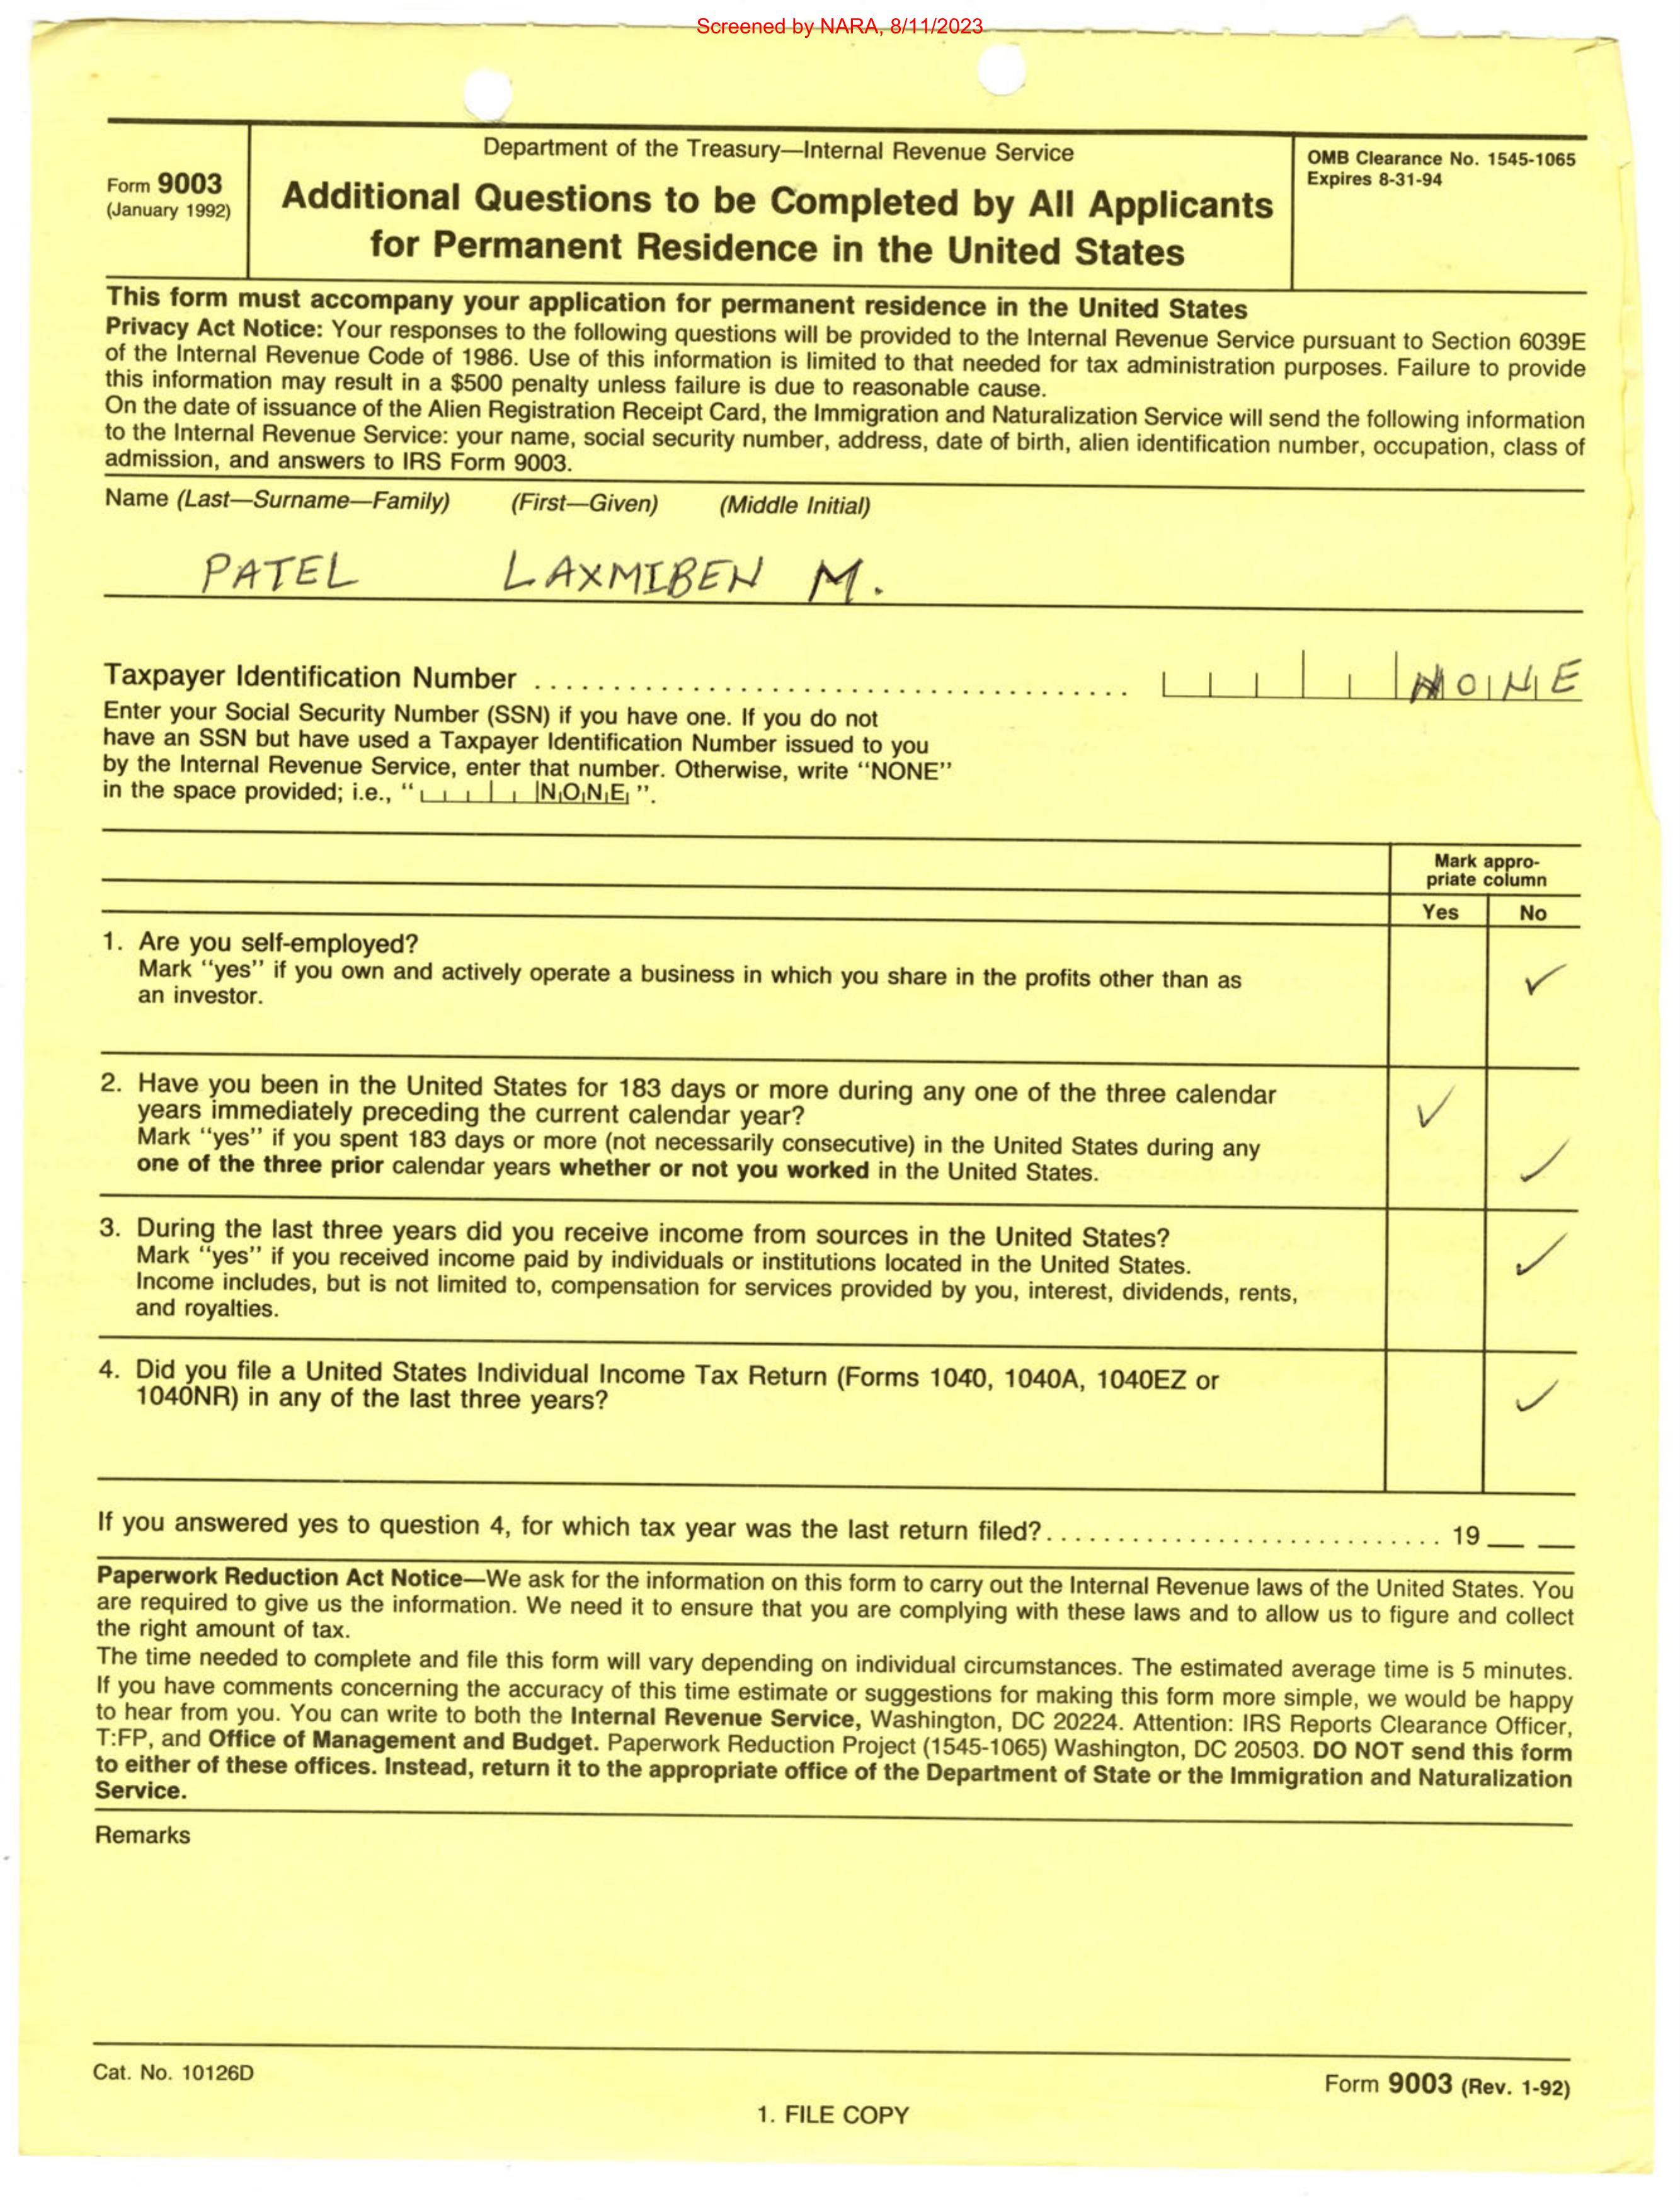 Screened by NARA, 8/11/2023
Form 9003
(January 1992)
Department of the Treasury—Internal Revenue Service
Additional Questions to be Completed by All Applicants
for Permanent Residence in the United States
OMB Clearance No. 1545-1065
Expires 8-31-94
This form must accompany your application for permanent residence in the United States
Privacy Act Notice: Your responses to the following questions will be provided to the Internal Revenue Service pursuant to Section 6039E
of the Internal Revenue Code of 1986. Use of this information is limited to that needed for tax administration purposes. Failure to provide
this information may result in a $500 penalty unless failure is due to reasonable cause.
On the date of issuance of the Alien Registration Receipt Card, the Immigration and Naturalization Service will send the following information
to the Internal Revenue Service: your name, social security number, address, date of birth, alien identification number, occupation, class of
admission, and answers to IRS Form 9003.
Name (Last—Surname—Family) (First—Given) (Middle Initial)
PATEL LAXMIBEN M.
Taxpayer Identification Number ........................................ NONE
Enter your Social Security Number (SSN) if you have one. If you do not
have an SSN but have used a Taxpayer Identification Number issued to you
by the Internal Revenue Service, enter that number. Otherwise, write "NONE"
in the space provided; i.e., "NONE".
Mark appro-
priate column
Yes No
1. Are you self-employed?
Mark "yes" if you own and actively operate a business in which you share in the profits other than as
an investor. ✓
2. Have you been in the United States for 183 days or more during any one of the three calendar
years immediately preceding the current calendar year? ✓
Mark "yes" if you spent 183 days or more (not necessarily consecutive) in the United States during any
one of the three prior calendar years whether or not you worked in the United States. ✓
3. During the last three years did you receive income from sources in the United States?
Mark "yes" if you received income paid by individuals or institutions located in the United States. ✓
Income includes, but is not limited to, compensation for services provided by you, interest, dividends, rents,
and royalties.
4. Did you file a United States Individual Income Tax Return (Forms 1040, 1040A, 1040EZ or
1040NR) in any of the last three years? ✓
If you answered yes to question 4, for which tax year was the last return filed?.............................. 19__ __
Paperwork Reduction Act Notice—We ask for the information on this form to carry out the Internal Revenue laws of the United States. You
are required to give us the information. We need it to ensure that you are complying with these laws and to allow us to figure and collect
the right amount of tax.
The time needed to complete and file this form will vary depending on individual circumstances. The estimated average time is 5 minutes.
If you have comments concerning the accuracy of this time estimate or suggestions for making this form more simple, we would be happy
to hear from you. You can write to both the Internal Revenue Service, Washington, DC 20224. Attention: IRS Reports Clearance Officer,
T:FP, and Office of Management and Budget. Paperwork Reduction Project (1545-1065) Washington, DC 20503. DO NOT send this form
to either of these offices. Instead, return it to the appropriate office of the Department of State or the Immigration and Naturalization
Service.
Remarks
Cat. No. 10126D
Form 9003 (Rev. 1-92)
1. FILE COPY